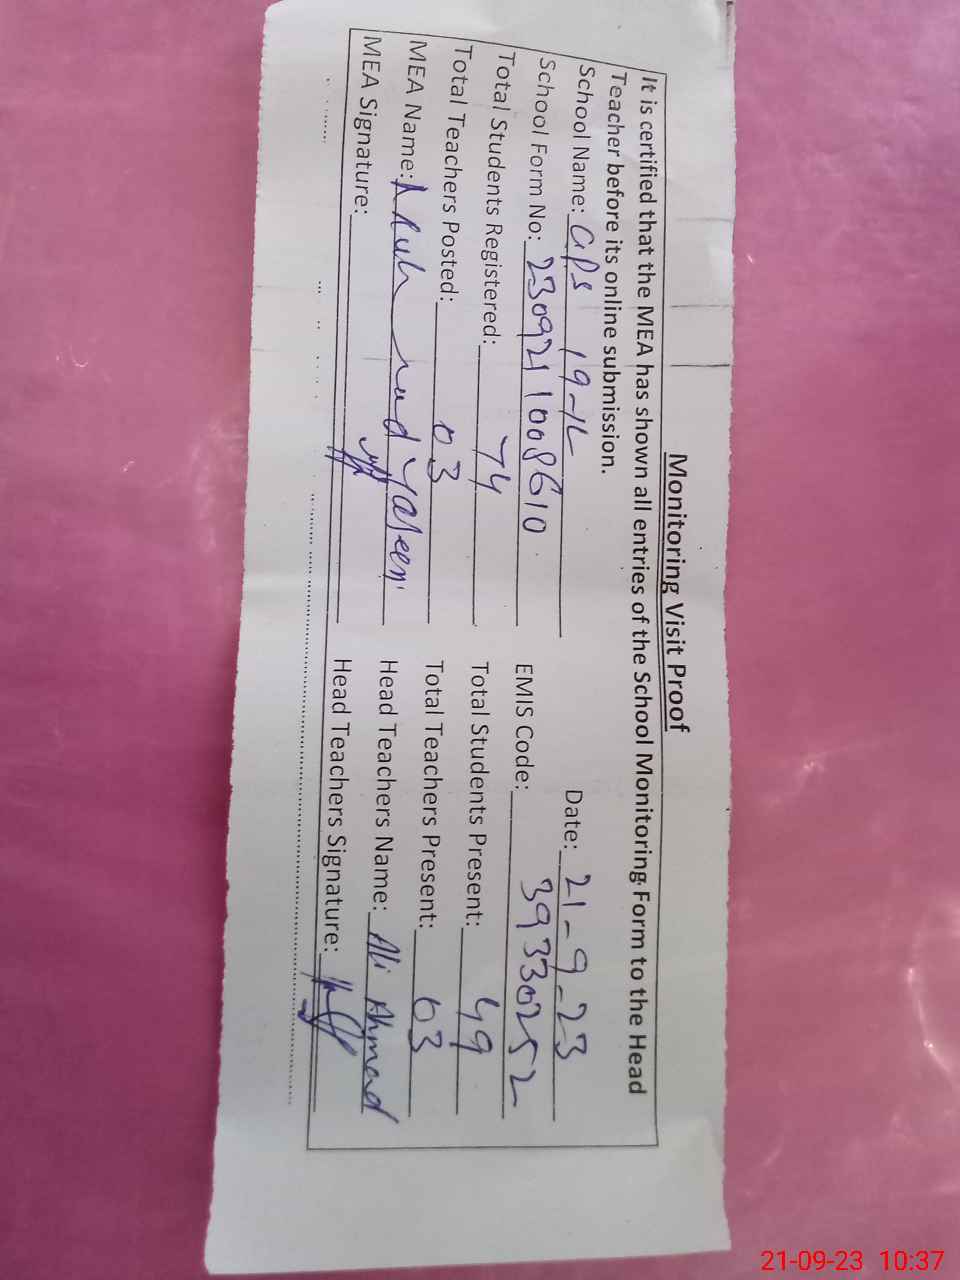 Monitoring Visit Proof
It is certified that the MEA has shown all entries of the School Monitoring Form to the Head
Teacher before its online submission.
School Name: GPS 19-1L Date: 21-9-23
School Form No: 230921 1008610 EMIS Code: 39330252
Total Students Registered: 74 Total Students Present: 49
Total Teachers Posted: 03 Total Teachers Present: 03
MEA Name: Yaseen Head Teachers Name: Ali Ahmad
MEA Signature: Head Teachers Signature:
21-09-23 10:37